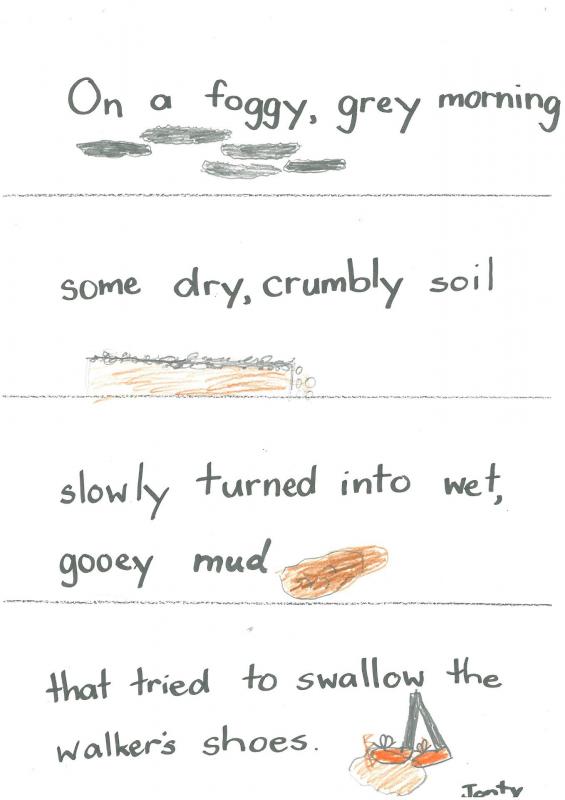 On a foggy, grey morning
some dry, crumbly soil
slowly turned into wet,
gooey mud
that tried to swallow the
walker's shoes.
Jonty